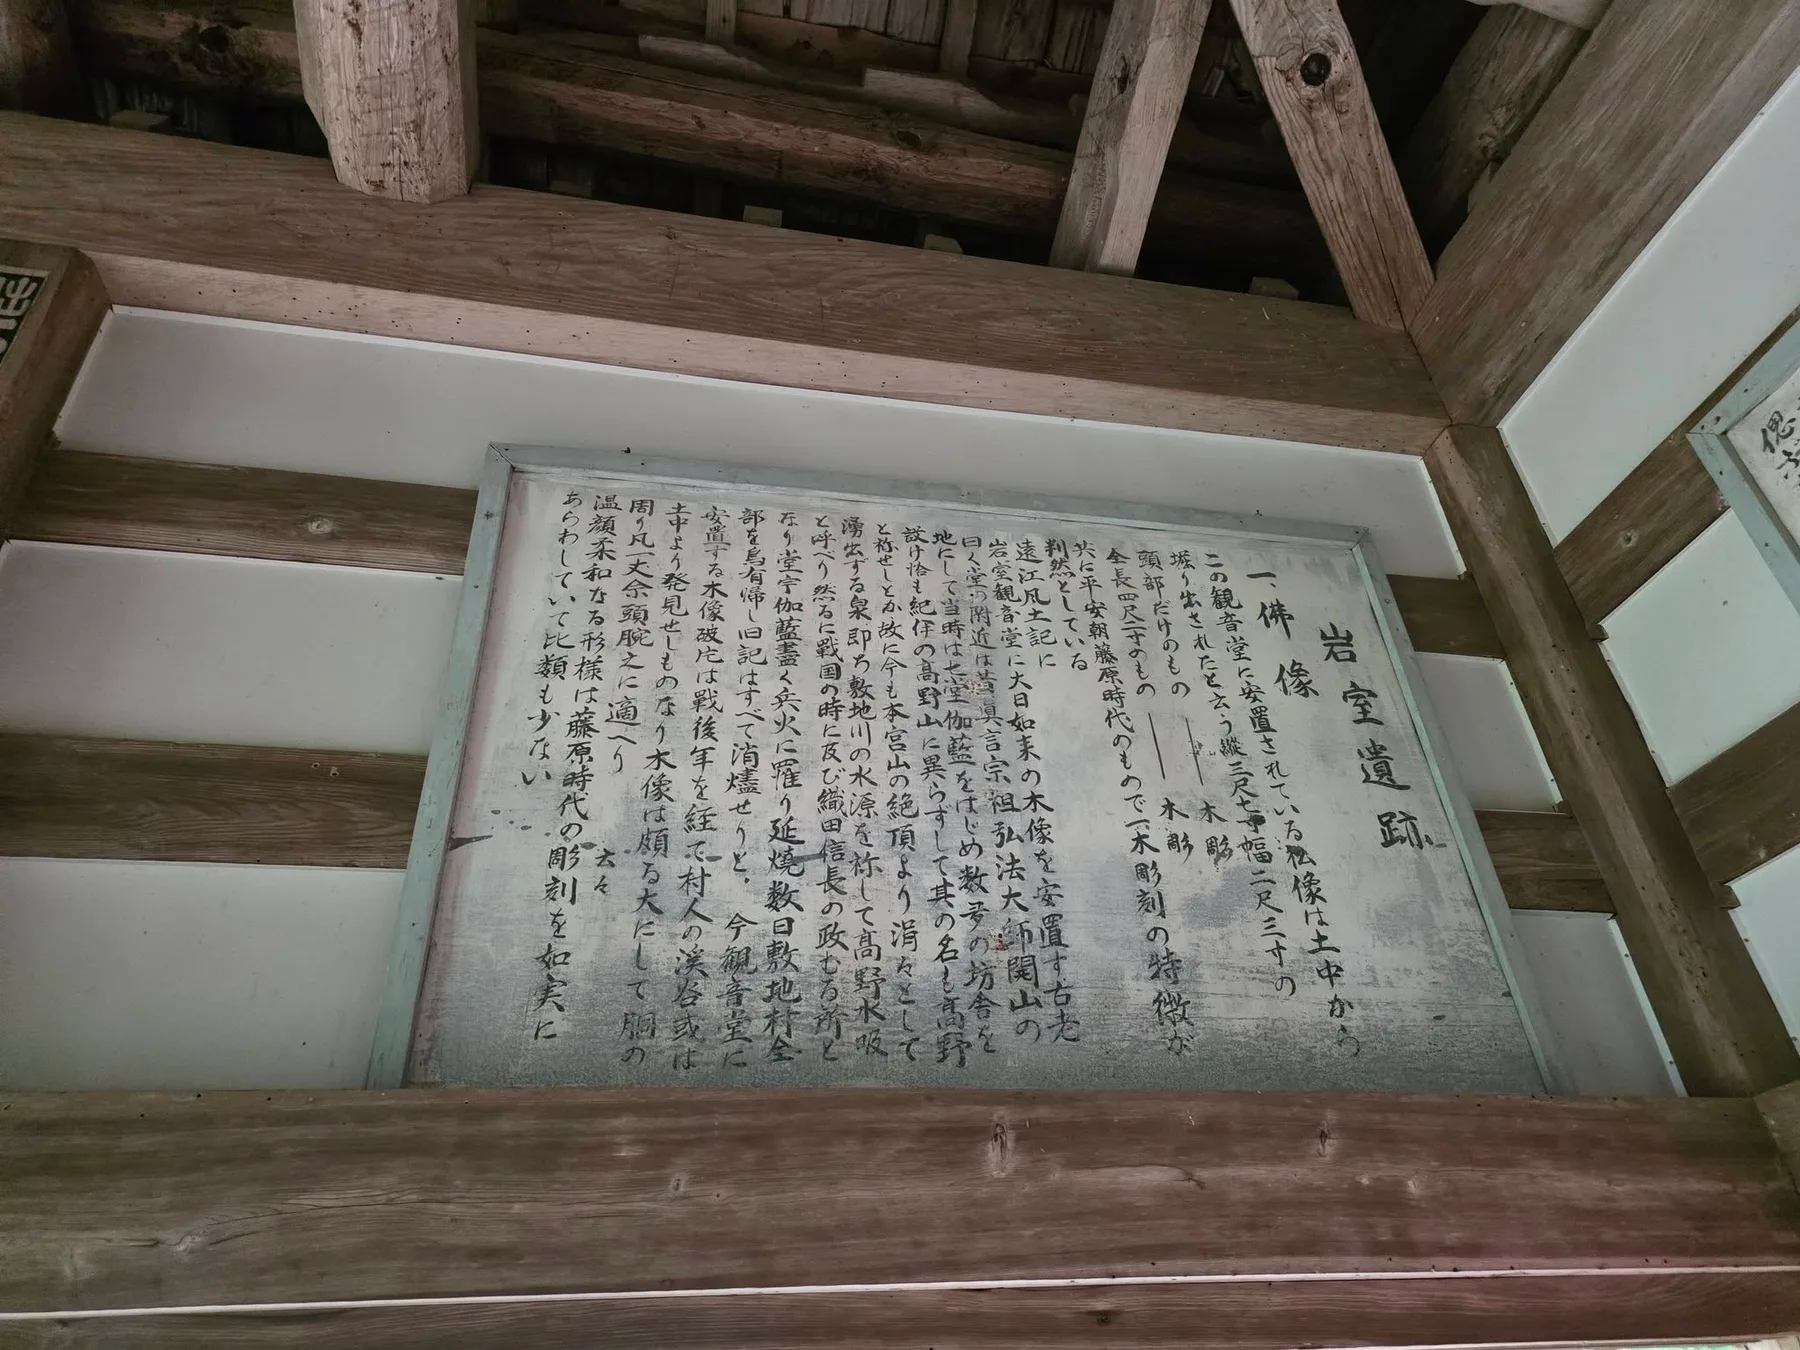 岩室遺跡
一、佛像
この観音堂に安置されている仏像は土中から
堀り出されたと云う縦三尺七寸幅二尺三寸の
頭部だけのもの ― 木彫
全長四尺二寸のもの ― 木彫
共に平安朝藤原時代のもので一木彫刻の特徴が
判然としている
遠江風土記に
岩室観音堂に大日如来の木像を安置す古老
曰く堂の附近は昔真言宗祖弘法大師開山の
地にして当時は七堂伽藍をはじめ数多の坊舎を
設け恰も紀伊の高野山に異らずして其の名も高野
と称せしとか故に今も本宮山の絶頂より涓々として
湧出する泉即ち敷地川の水源を称して高野水吸
と呼べり然るに戰国の時に及び織田信長の政むる所と
なり堂宇伽藍盡く兵火に罹り延燒数日敷地村全
部を烏有帰し旧記はすべて消燼せりと。今観音堂に
安置する木像破片は戦後年を経て村人の渓谷或は
土中より発見せしものなり木像は頗る大にして胴の
周り凡一丈余頭腕之に適へり 云々
温顔柔和なる形様は藤原時代の彫刻を如実に
あらわしていて比類も少ない